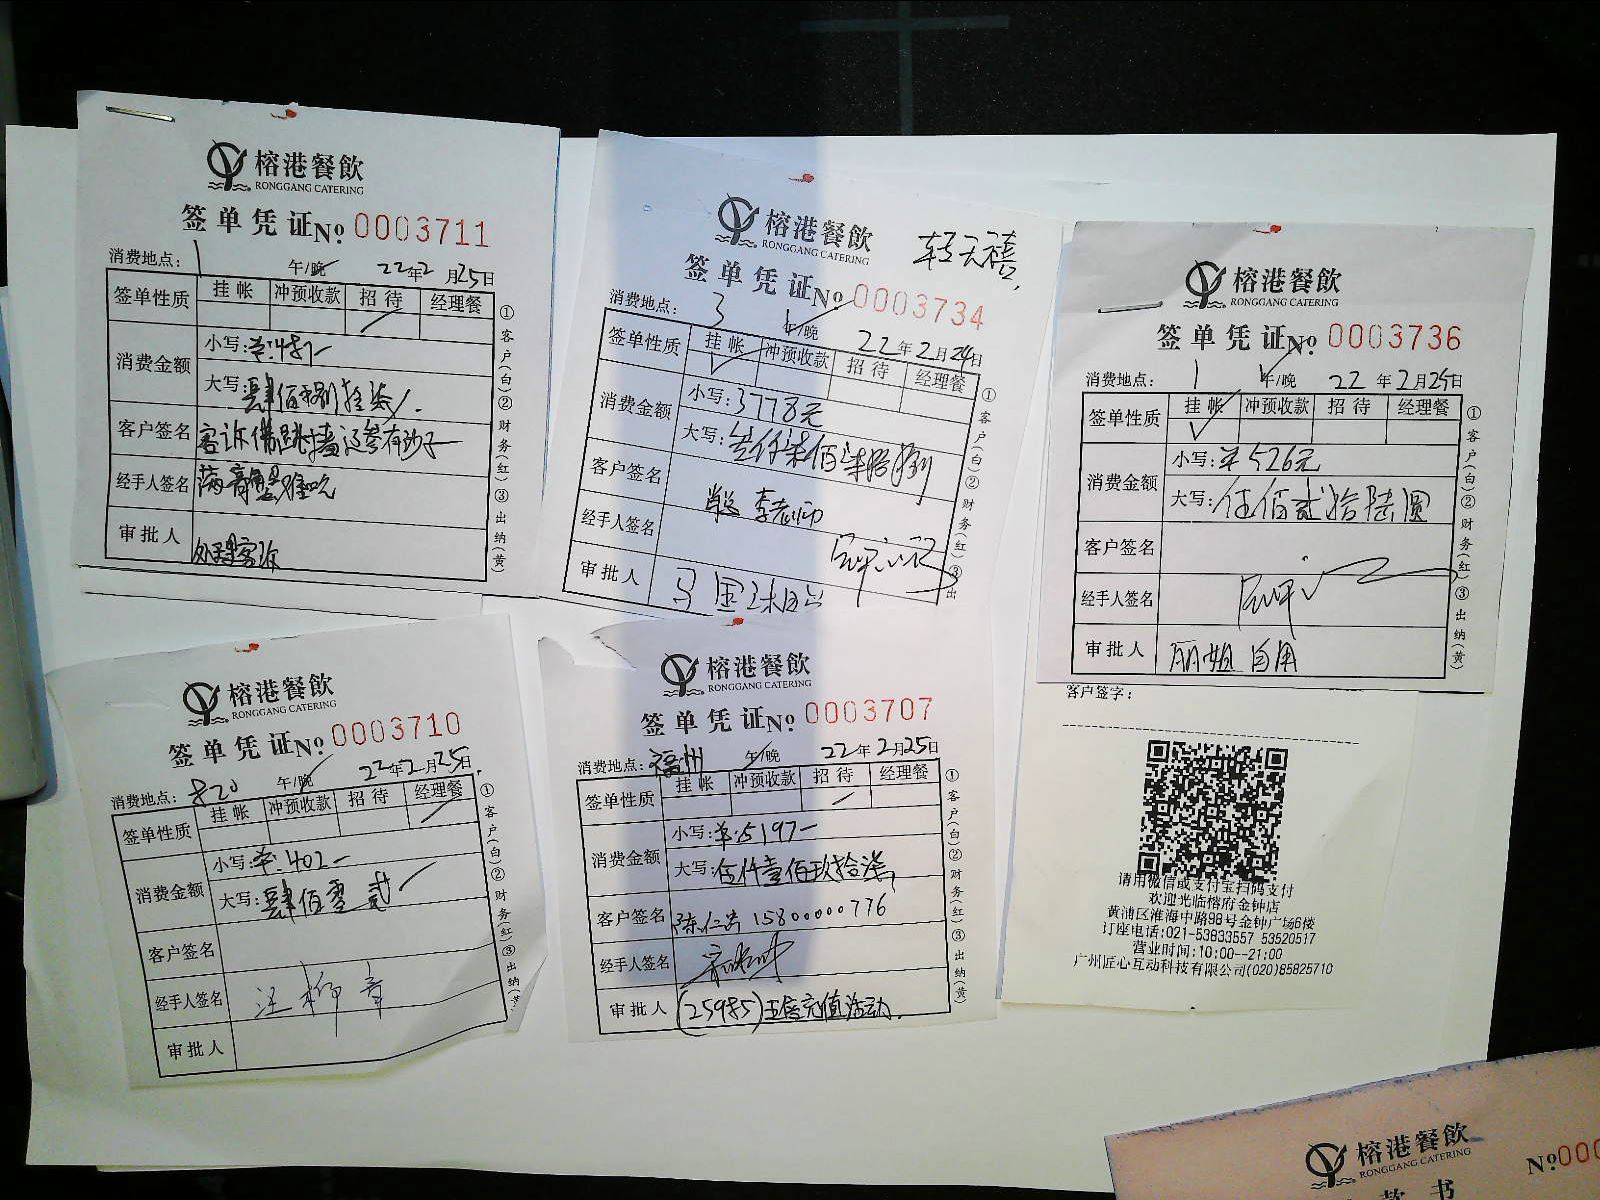 榕港餐飲
RONGGANG CATERING
签单凭证 No. 0003711
消费地点: 1 午/晚 22年2月25日
签单性质 挂帐 冲预收款 招待 经理餐
消费金额 小写: 487-
大写: 肆佰捌拾柒
客户签名 客诉佛跳墙辽参有沙子
经手人签名
审批人 处理客诉
①客户(白)②财务(红)③出纳(黄)
榕港餐飲
RONGGANG CATERING
签单凭证 No. 0003734
消费地点: 3 午/晚 22年2月24日
签单性质 挂帐 冲预收款 招待 经理餐
消费金额 小写: 3778元
大写: 叁仟柒佰柒拾捌
客户签名 李老师
经手人签名
审批人
①客户(白)②财务(红)③出
榕港餐飲
RONGGANG CATERING
签单凭证 No. 0003736
消费地点: 1 午/晚 22年2月25日
签单性质 挂帐 冲预收款 招待 经理餐
消费金额 小写: ¥526元
大写: 伍佰贰拾陆圆
客户签名
经手人签名
审批人 丽姐 自用
①客户(白)②财务(红)③出纳(黄)
榕港餐飲
RONGGANG CATERING
签单凭证 No. 0003710
消费地点: 820 午/晚 22年2月25日
签单性质 挂帐 冲预收款 招待 经理餐
消费金额 小写: 402-
大写: 肆佰零贰
客户签名
经手人签名 汪柳青
审批人
①客户(白)②财务(红)③出纳(黄)
榕港餐飲
RONGGANG CATERING
签单凭证 No. 0003707
消费地点: 福州 午/晚 22年2月25日
签单性质 挂帐 冲预收款 招待 经理餐
消费金额 小写: 5197-
大写: 伍仟壹佰玖拾柒
客户签名 15800000776
经手人签名
审批人 (25985)五倍充值活动.
①客户(白)②财务(红)③出纳(黄)
客户签字:
请用微信或支付宝扫码支付
欢迎光临榕府金钟店
黄浦区淮海中路98号金钟广场6楼
订座电话:021-53833557 53520517
营业时间:10:00--21:00
广州匠心互动科技有限公司(020)85825710
榕港餐飲
RONGGANG CATERING
No.000
款书